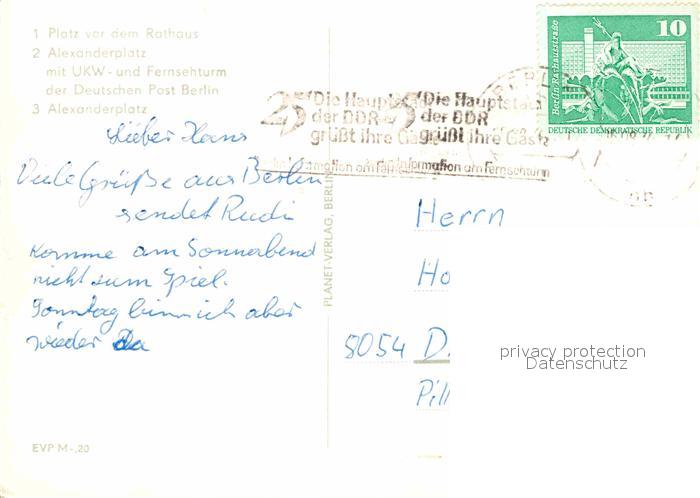 1 Platz vor dem Rathaus
2 Alexanderplatz
mit UKW- und Fernsehturm
der Deutschen Post Berlin
3 Alexanderplatz
Lieber Hans
Viele Grüße aus Berlin
sendet Rudi
Komme am Sonnabend
nicht zum Spiel.
Sonntag bin ich aber
wieder da
EVP M -,20
PLANET-VERLAG, BERLIN
25 Die Hauptstadt
der DDR
grüßt ihre Gäste
Information am Fernsehturm
Die Hauptstadt
der DDR
grüßt ihre Gäste
Information am Fernsehturm
10
Berlin, Rathausstraße
DEUTSCHE DEMOKRATISCHE REPUBLIK
Herrn
Ho
8054 D.
Pill
privacy protection
Datenschutz